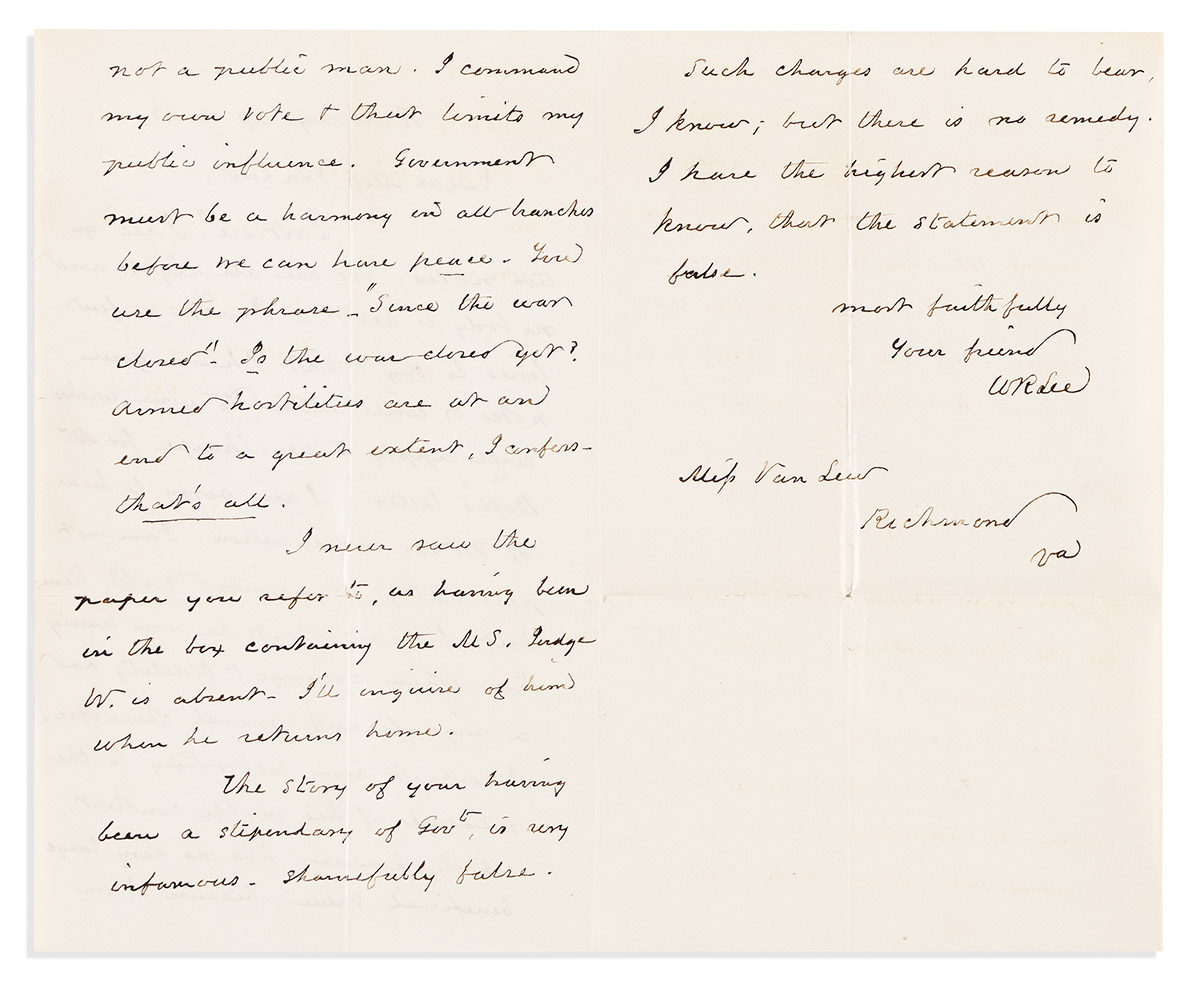 not a public man. I command
my own vote & that limits my
public influence. Government
must be a harmony in all branches
before we can have peace. You
use the phrase - "Since the war
closed" - Is the war closed yet?
Armed hostilities are at an
end to a great extent, I confess -
that's all.
I never saw the
paper you refer to, as having been
in the box containing the MS. Judge
W. is absent - I'll enquire of him
when he returns home.
The story of your having
been a stipendary of Govt, is very
infamous - shamefully false.
Such charges are hard to bear,
I know; but there is no remedy.
I have the highest reason to
know, that the statement is
false.
most faithfully
Your friend
WRLee
Miss Van Lew
Richmond
Va